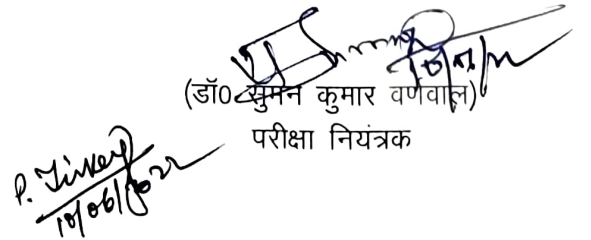 (डॉ0 सुमन कुमार वर्णवाल)
परीक्षा नियंत्रक
P. Tirkey
10/06/2022